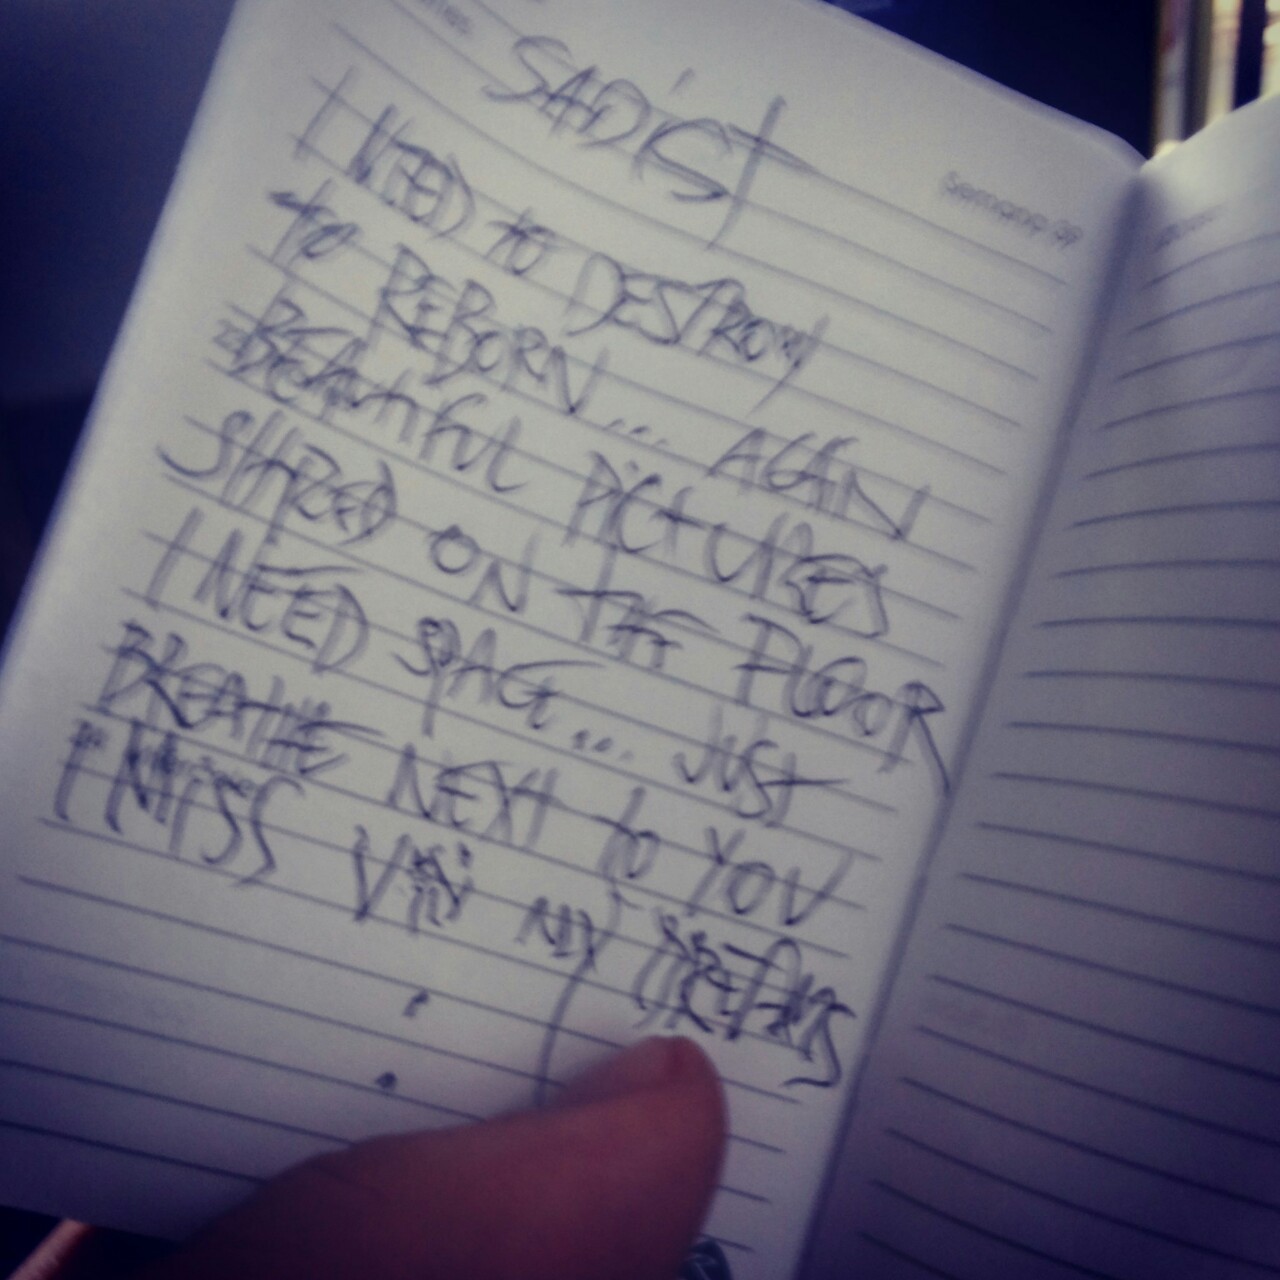 SADiST
Semana 49
I NEED to DESTROY
to REBORN... AGAIN
BEAUtifUL PiCtURES
SHRED ON THE FLOOR
I NEED SPACE... JUST
BREATHE NEXT to YOU
I MiSS V iN MY DREAMS